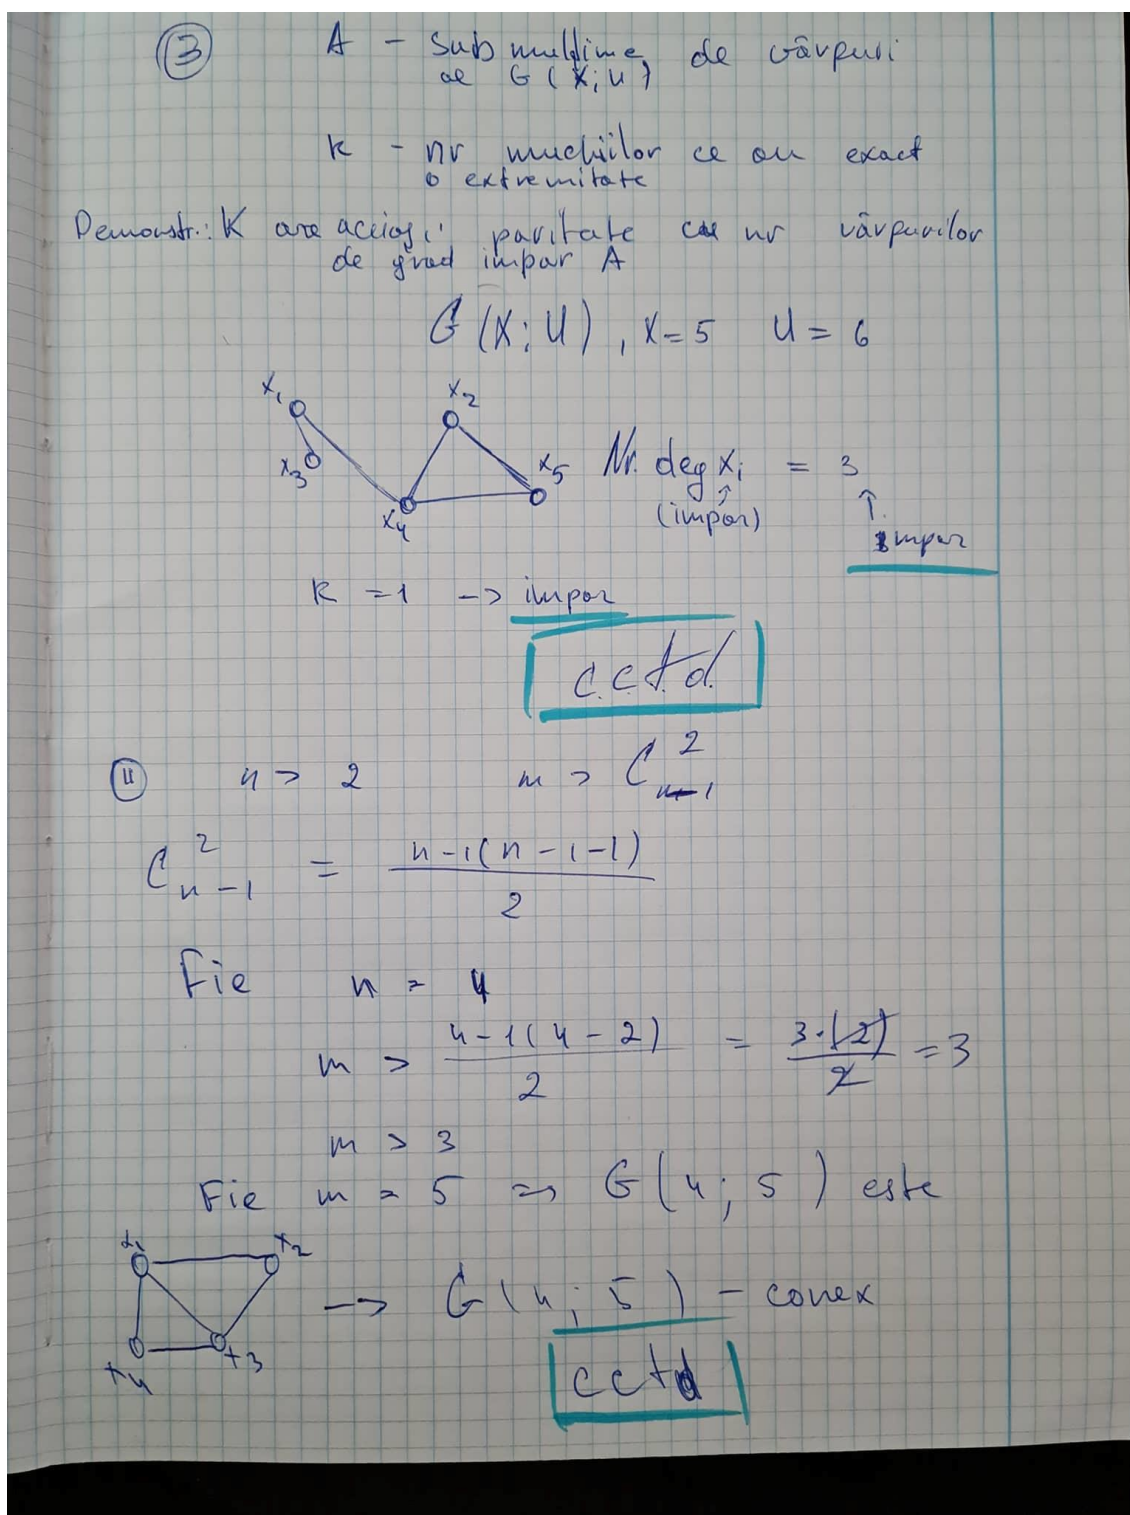 3 A - submulțime de vârfuri
al G(X;U)
k - nr muchiilor ce au exact
o extremitate
Demonstr.: K are aceiași paritate cu nr vârfurilor
de grad impar A
G(X;U), X=5 U=6
x1 x2
x3 x5 Nr. deg xi = 3
x4 (impar) impar
k = 1 -> impar
c.c.t.d.
4 n > 2 m > C²n-1
C²n-1 = n-1(n-1-1)/2
Fie n = 4
m > 4-1(4-2)/2 = 3·(2)/2 = 3
m > 3
Fie m = 5 => G(4;5) este
x1 x2
-> G(4;5) - conex
x4 x3
cctd